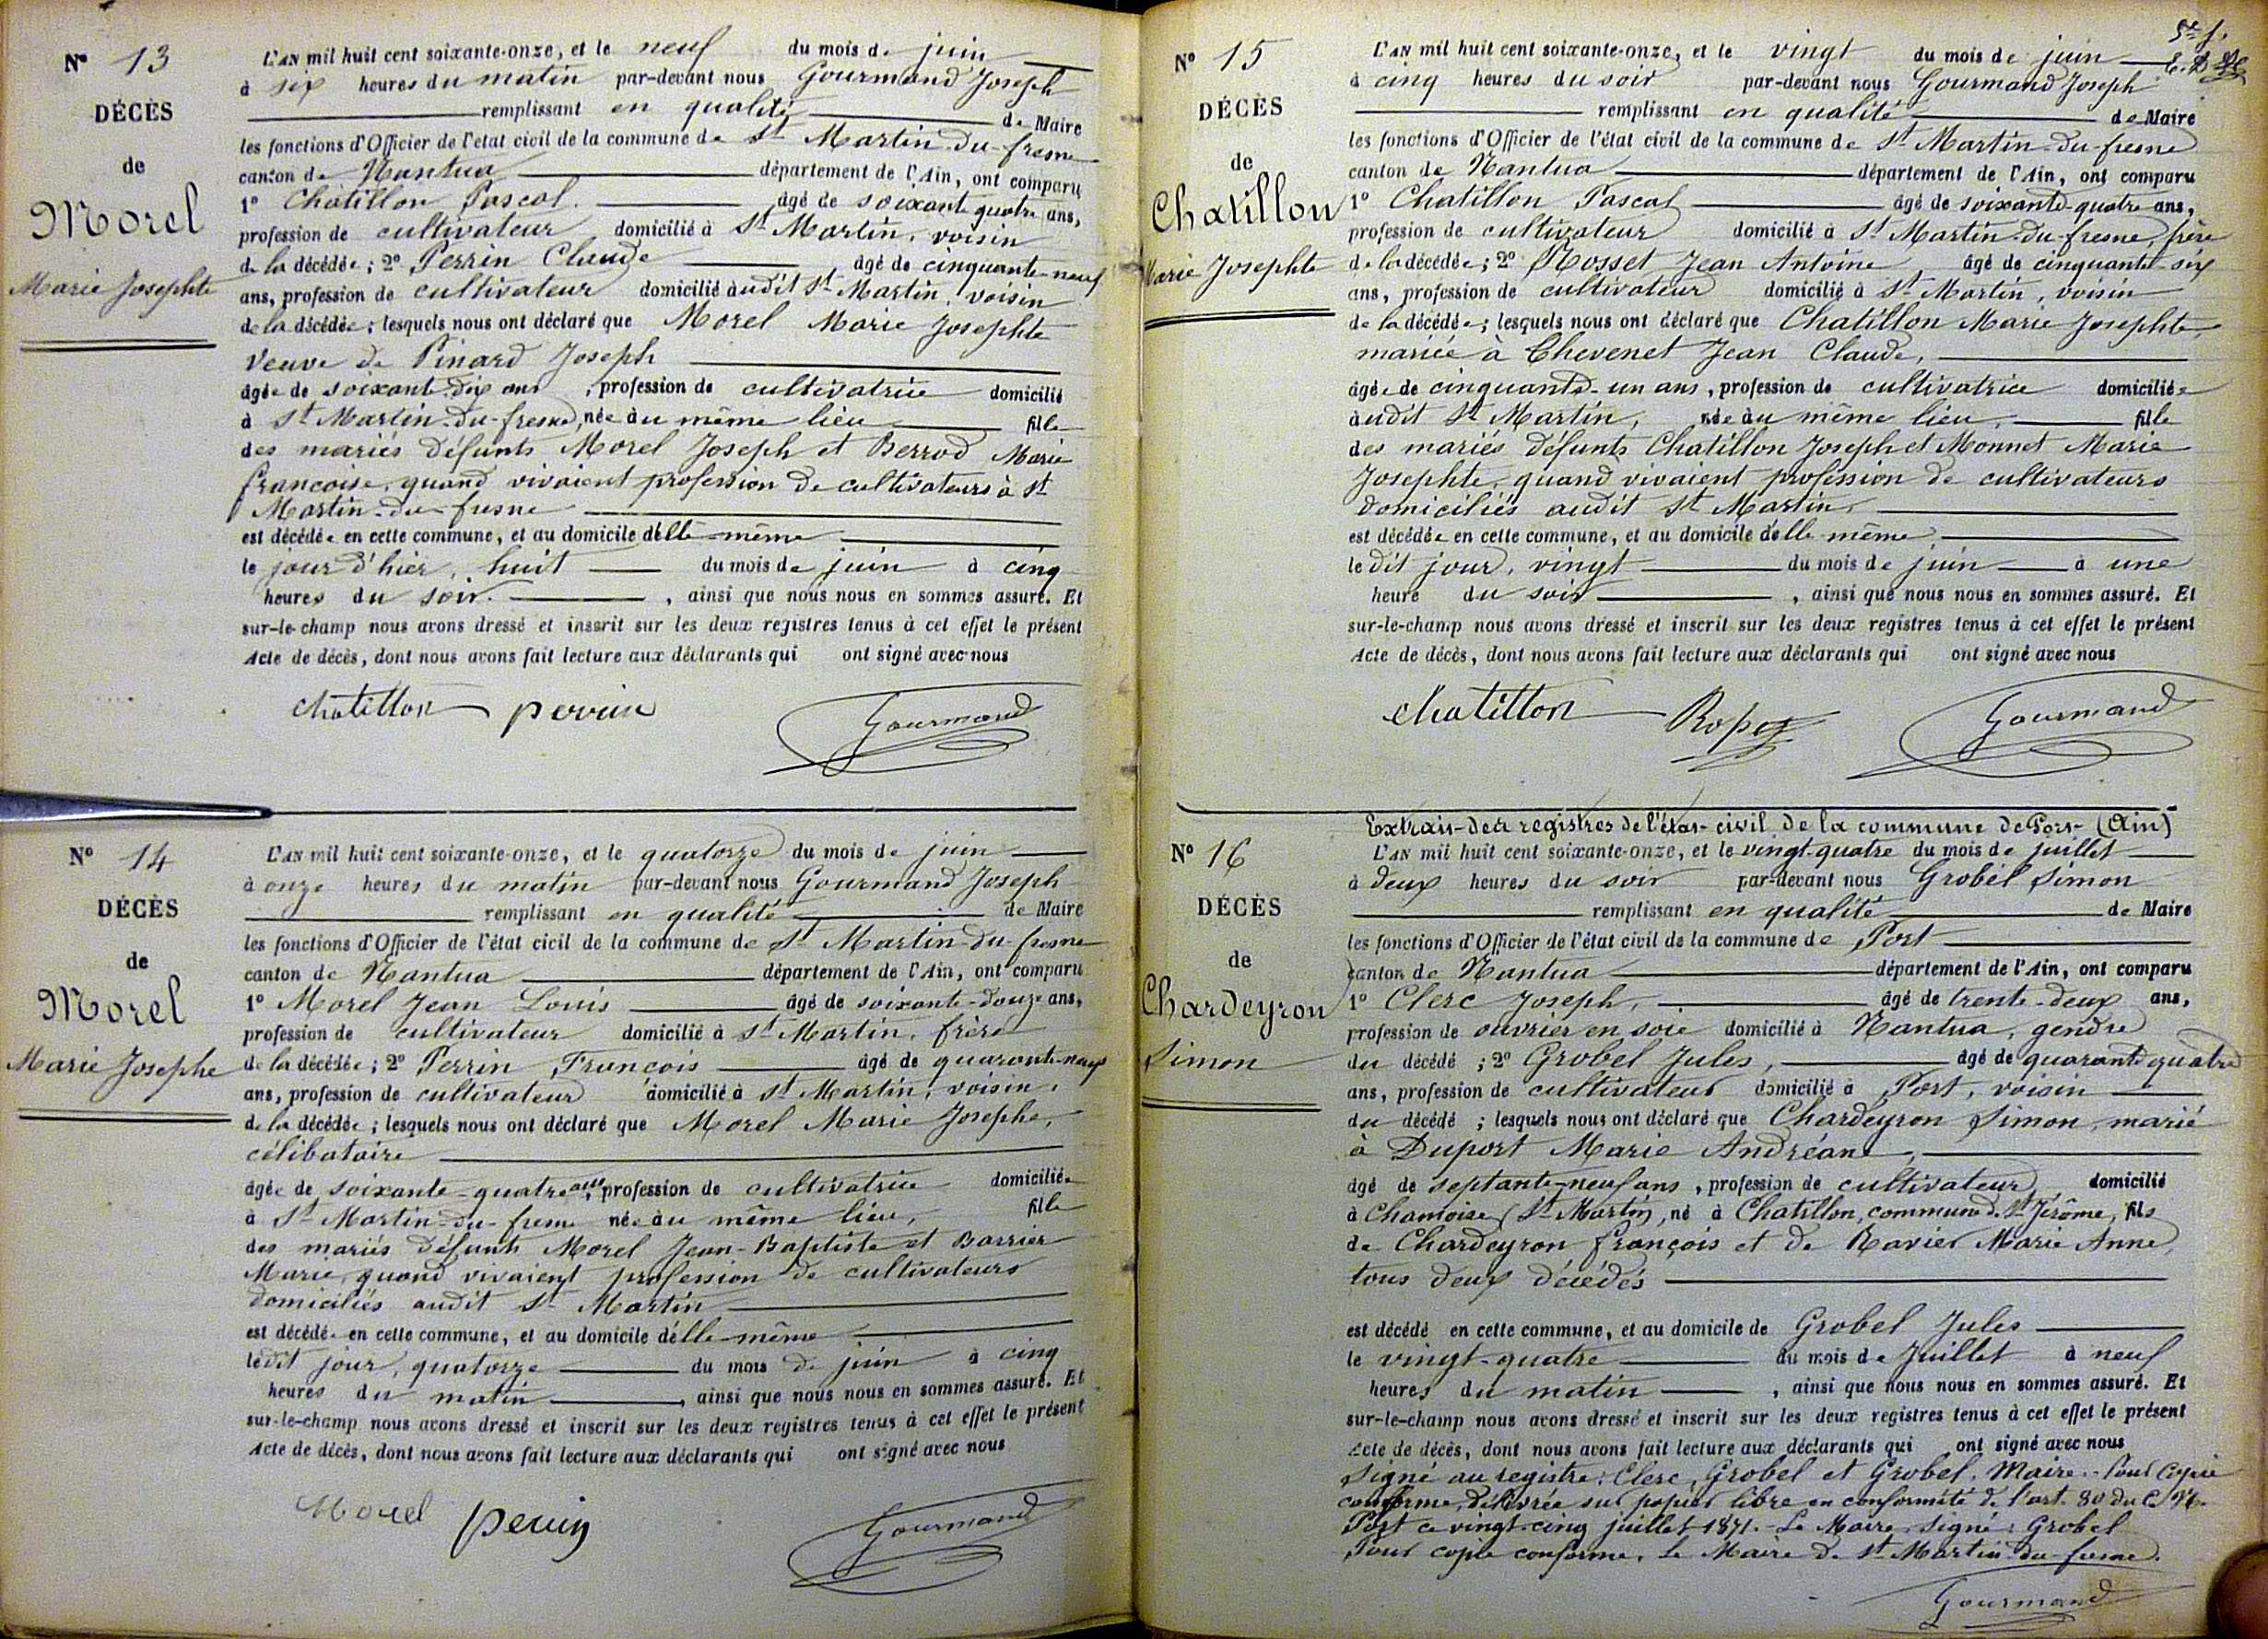 N° 13
DÉCÈS
de
Morel
Marie Josephte
L'AN mil huit cent soixante-onze, et le neuf du mois de juin
à six heures du matin par-devant nous Gourmand Joseph
remplissant en qualité de Maire
les fonctions d'Officier de l'état civil de la commune de St Martin-du-fresne
canton de Nantua département de l'Ain, ont comparu
1° Chatillon Pascal. âgé de soixante quatre ans,
profession de cultivateur domicilié à St Martin, voisin
de la décédée; 2° Perrin Claude âgé de cinquante-neuf
ans, profession de cultivateur domicilié audit St Martin, voisin
de la décédée; lesquels nous ont déclaré que Morel Marie Josephte
veuve de Pinard Joseph
âgée de soixante-dix ans, profession de cultivatrice domicilié
à St Martin-du-fresne, née au même lieu fille
des mariés défunts Morel Joseph et Berrod Marie
françoise, quand vivaient profession de cultivateurs à St
Martin-du-fresne
est décédée en cette commune, et au domicile d'elle-même
le jour d'hier, huit du mois de juin à cinq
heures du soir. , ainsi que nous nous en sommes assuré. Et
sur-le-champ nous avons dressé et inscrit sur les deux registres tenus à cet effet le présent
Acte de décès, dont nous avons fait lecture aux déclarants qui ont signé avec nous
chatillon perrin Gourmand
N° 14
DÉCÈS
de
Morel
Marie Josephe
L'AN mil huit cent soixante-onze, et le quatorze du mois de juin
à onze heures du matin par-devant nous Gourmand Joseph
remplissant en qualité de Maire
les fonctions d'Officier de l'état civil de la commune de St Martin-du-fresne
canton de Nantua département de l'Ain, ont comparu
1° Morel Jean Louis âgé de soixante-douze ans,
profession de cultivateur domicilié à St Martin, frère
de la décédée; 2° Perrin François âgé de quarante-neuf
ans, profession de cultivateur domicilié à St Martin, voisin,
de la décédée; lesquels nous ont déclaré que Morel Marie Josephe,
célibataire
âgée de soixante-quatre ans, profession de cultivatrice domiciliée
à St Martin-du-fresne née au même lieu, fille
des mariés défunts Morel Jean-Baptiste et Barrier
Marie, quand vivaient profession de cultivateurs
domiciliés audit St Martin
est décédée en cette commune, et au domicile d'elle-même
ledit jour, quatorze du mois de juin à cinq
heures du matin , ainsi que nous nous en sommes assuré. Et
sur-le-champ nous avons dressé et inscrit sur les deux registres tenus à cet effet le présent
Acte de décès, dont nous avons fait lecture aux déclarants qui ont signé avec nous
Morel perrin Gourmand
N° 15
DÉCÈS
de
Chatillon
Marie Josephte
L'AN mil huit cent soixante-onze, et le vingt du mois de juin
à cinq heures du soir par-devant nous Gourmand Joseph
remplissant en qualité de Maire
les fonctions d'Officier de l'état civil de la commune de St Martin-du-fresne
canton de Nantua département de l'Ain, ont comparu
1° Chatillon Pascal âgé de soixante-quatre ans,
profession de cultivateur domicilié à St Martin-du-fresne, frère
de la décédée; 2° Rosset Jean Antoine âgé de cinquante-six
ans, profession de cultivateur domicilié à St Martin, voisin
de la décédée; lesquels nous ont déclaré que Chatillon Marie Josephte,
mariée à Chevenet Jean Claude,
âgée de cinquante-un ans, profession de cultivatrice domiciliée
audit St Martin, née au même lieu, fille
des mariés défunts Chatillon Joseph et Monnet Marie
Josephte, quand vivaient profession de cultivateurs
domiciliés audit St Martin,
est décédée en cette commune, et au domicile d'elle-même
ledit jour, vingt du mois de juin à une
heure du soir , ainsi que nous nous en sommes assuré. Et
sur-le-champ nous avons dressé et inscrit sur les deux registres tenus à cet effet le présent
Acte de décès, dont nous avons fait lecture aux déclarants qui ont signé avec nous
chatillon Gourmand
Extrait des registres de l'état-civil de la commune de Port (Ain)
N° 16
DÉCÈS
de
Chardeyron
Simon
L'AN mil huit cent soixante-onze, et le vingt-quatre du mois de juillet
à deux heures du soir par-devant nous Grobel Simon
remplissant en qualité de Maire
les fonctions d'Officier de l'état civil de la commune de Port
canton de Nantua département de l'Ain, ont comparu
1° Clerc Joseph, âgé de trente-deux ans,
profession de ouvrier en soie domicilié à Nantua, gendre
du décédé ; 2° Grobel Jules, âgé de quarante quatre
ans, profession de cultivateur domicilié à Port, voisin
du décédé ; lesquels nous ont déclaré que Chardeyron Simon, marié
à Duport Marie Andréane,
âgé de septante-neuf ans, profession de cultivateur domicilié
à Chamoise (St Martin), né à Chatillon, commune de St Jérôme, fils
de Chardeyron françois et de Ravier Marie Anne,
tous deux décédés
est décédé en cette commune, et au domicile de Grobel Jules
le vingt-quatre du mois de Juillet à neuf
heures du matin , ainsi que nous nous en sommes assuré. Et
sur-le-champ nous avons dressé et inscrit sur les deux registres tenus à cet effet le présent
Acte de décès, dont nous avons fait lecture aux déclarants qui ont signé avec nous
Signé au registre: Clerc, Grobel et Grobel, Maire. Pour Copie
conforme, délivrée sur papier libre en conformité de l'art. 80 du
Port ce vingt-cinq juillet 1871. Le Maire signé: Grobel
Pour copie conforme, Le Maire de St Martin-du-fresne.
Gourmand